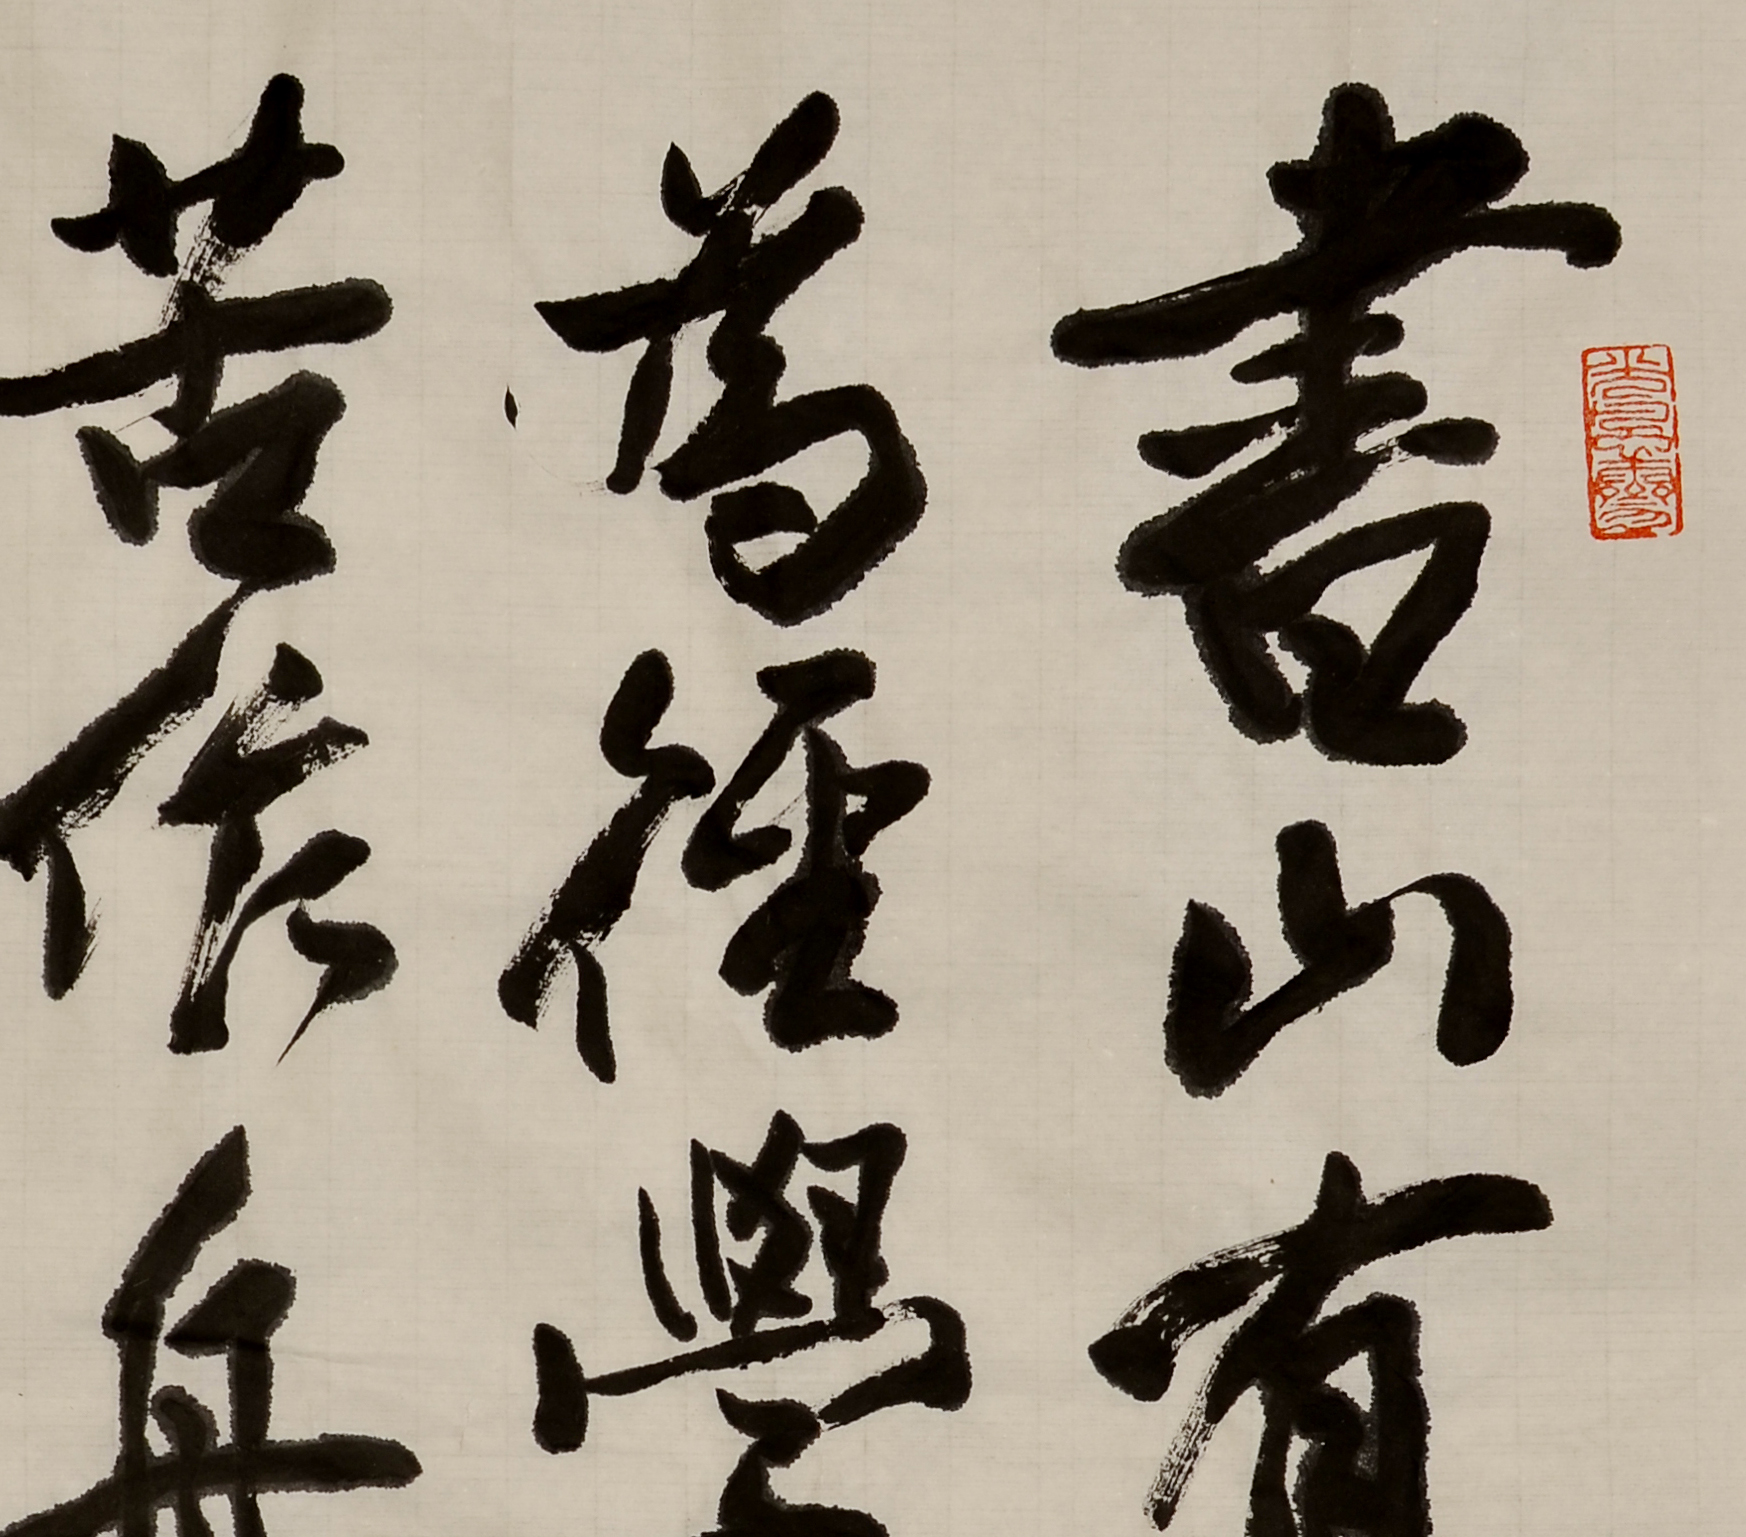 書山有
為徑學
苦作舟